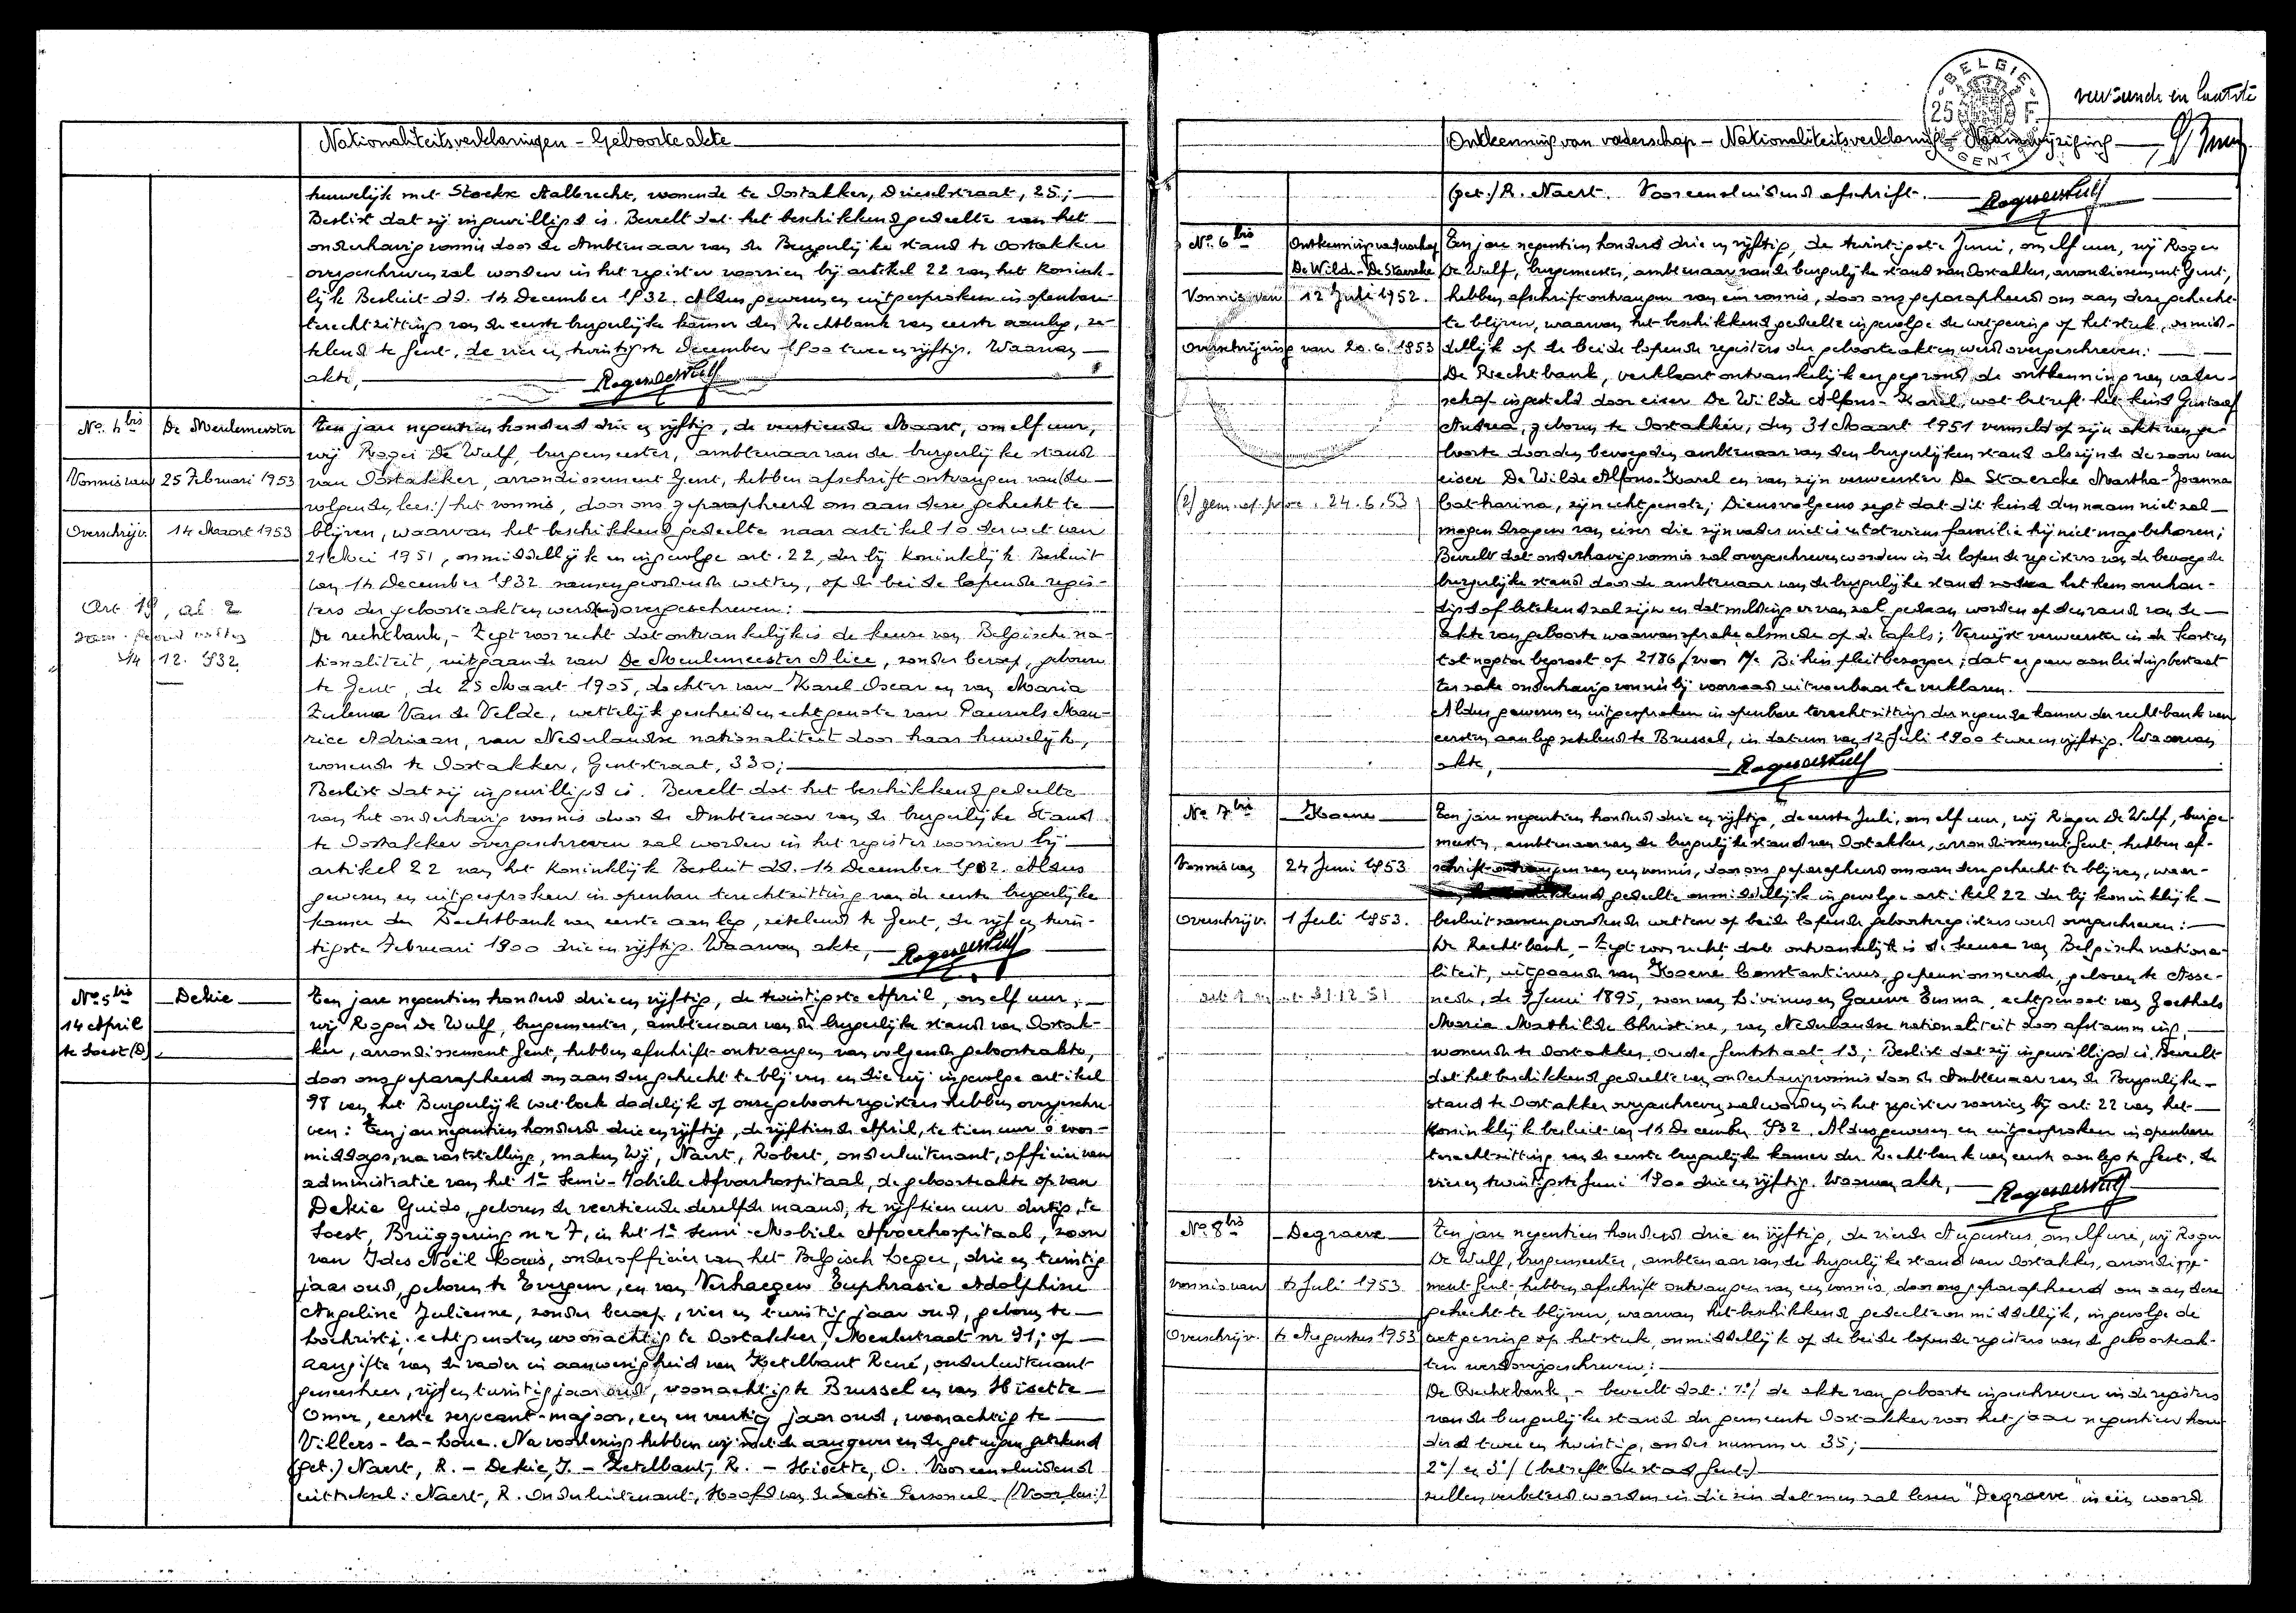 Nationaliteitsverklaringen - Geboorteakte
huwelijk met Stockx Aalbrecht, wonende te Oostakker, Drieselstraat, 25;
Beslist dat zij ingewilligd is. Beveelt dat het beschikkend gedeelte van het
onderhavig vonnis door de Ambtenaar van de Burgerlijke stand te Oostakker
overgeschreven zal worden in het register voorzien bij artikel 22 van het Konink-
lijk Besluit dd. 14 December 1932. Aldus gewezen en uitgesproken in openbare
terechtzitting van de eerste burgerlijke kamer der Rechtbank van eerste aanleg, ze-
telend te Gent, de vier en twintigste December 1900 twee en vijftig. Waarvan
akte,
No. 4 bis De Meulemeester
Vonnis van 25 Februari 1953
Overschrijv. 14 Maart 1953
Art. 19, al. 2
14.12.932
Ten jare negentien honderd drie en vijftig, de veertiende Maart, om elf uur,
wij Roger De Wulf, burgemeester, ambtenaar van de burgerlijke stand
van Oostakker, arrondissement Gent, hebben afschrift ontvangen van (de
volgende, lees:) het vonnis, door ons geparapheerd om aan deze gehecht te
blijven, waarvan het beschikkend gedeelte naar artikel 10 der wet van
21 Mei 1951, onmiddellijk en ingevolge art. 22, der bij Koninklijk Besluit
van 14 December 1932 samengeordende wetten, op de beide lopende regis-
ters der geboorteakten werd overgeschreven:
De rechtbank, - Zegt voor recht dat ontvankelijk is de keuze van Belgische na-
tionaliteit, uitgaande van De Meulemeester Alice, zonder beroep, geboren
te Gent, de 25 Maart 1905, dochter van Karel Oscar en van Maria
Zulema Van de Velde, wettelijk gescheiden echtgenote van Pauwels Mau-
rice Adriaan, van Nederlandse nationaliteit door haar huwelijk,
wonende te Oostakker, Gentstraat, 330;
Beslist dat zij ingewilligd is. Beveelt dat het beschikkend gedeelte
van het onderhavig vonnis door de Ambtenaar van de burgerlijke Stand
te Oostakker overgeschreven zal worden in het register voorzien bij
artikel 22 van het Koninklijk Besluit dd. 14 December 1932. Aldus
gewezen en uitgesproken in openbare terechtzitting van de eerste burgerlijke
kamer der Rechtbank van eerste aanleg, zetelend te Gent, de vijf en twin-
tigste Februari 1900 drie en vijftig. Waarvan akte,
No. 5 bis Dekie
14 April
te Soest (D)
Ten jare negentien honderd drie en vijftig, de twintigste April, om elf uur,
wij Roger De Wulf, burgemeester, ambtenaar van de burgerlijke stand van Oostak-
ker, arrondissement Gent, hebben afschrift ontvangen van volgende geboorteakte,
door ons geparapheerd om aan deze gehecht te blijven en die wij ingevolge artikel
98 van het Burgerlijk wetboek dadelijk op onze geboorteregisters hebben overgeschre-
ven: Ten jare negentien honderd drie en vijftig, de vijftiende April, te tien uur 's voor-
middags, na vaststelling, maken Wij, Naert, Robert, onderluitenant, officier van
administratie van het 1e Semi-Mobiele Afvoerhospitaal, de geboorteakte op van
Dekie Guido, geboren de veertiende derzelfde maand, te vijftien uur dertig, te
Soest, Brüggering nr 7, in het 1e Semi-Mobiele Afvoerhospitaal, zoon
van Ides Noël Louis, onderofficier van het Belgisch Leger, drie en twintig
jaar oud, geboren te Evergem, en van Verhaegen Euphrasie Adolphine
Angeline Julienne, zonder beroep, vier en twintig jaar oud, geboren te
Lochristi; echtgenoten woonachtig te Oostakker, Meulestraat nr 91; op
aangifte van de vader in aanwezigheid van Ketelbant René, onderluitenant
geneesheer, vijf en twintig jaar oud, woonachtig te Brussel en van Hisette
Omer, eerste sergeant-majoor, een en veertig jaar oud, woonachtig te
Villers-la-Loue. Na voorlezing hebben wij met de aangever en de getuigen getekend
(get.) Naert, R. - Dekie, I. - Ketelbant, R. - Hisette, O. Voor eensluidend
uittreksel: Naert, R. Onderluitenant, Hoofd van de Sectie Personeel. (Voor len:)
BELGIE
25 F.
GENT
Ontkenning van vaderschap - Nationaliteitsverklaring - Naamwijziging
(get.) R. Naert. Voor eensluidend afschrift.
No. 6 bis Ontkenning vaderschap
De Wilde - De Staercke
Vonnis van 12 Juli 1952.
Overschrijving van 20.6.1953
24.6.53
Ten jare negentien honderd drie en vijftig, de twintigste Juni, om elf uur, wij Roger
De Wulf, burgemeester, ambtenaar van de burgerlijke stand van Oostakker, arrondissement Gent,
hebben afschrift ontvangen van een vonnis, door ons geparapheerd om aan deze gehecht
te blijven, waarvan het beschikkend gedeelte ingevolge de wetgeving op het stuk, onmid-
dellijk op de beide lopende registers der geboorteakten werd overgeschreven:
De Rechtbank, verklaart ontvankelijk en gegrond de ontkenning van vader-
schap ingesteld door eiser De Wilde Alfons-Karel, wat betreft het kind Gustaaf
Andrea, geboren te Oostakker, den 31 Maart 1951 vermeld op zijn akte van ge-
boorte door den bevoegden ambtenaar van den burgerlijken stand als zijnde de zoon van
eiser De Wilde Alfons-Karel en van zijn verweerster De Staercke Martha-Joanna
Catharina, zijn echtgenote; Dienvolgens zegt dat dit kind den naam niet zal
mogen dragen van eiser die zijn vader niet is en tot wiens familie hij niet mag behoren;
Beveelt dat onderhavig vonnis zal overgeschreven worden in de lopende registers van de bevoegde
burgerlijke stand door de ambtenaar van de burgerlijke stand zodra het hem overhan-
digd of betekend zal zijn en dat melding ervan zal gedaan worden op den rand van de
akte van geboorte waarvan sprake alsmede op de tafels; Verwijst verweerster in de kosten
tot nogtoe begroot op 2186 f voor Mr Bihin pleitbezorger; dat er geen aanleiding bestaat
ter zake onderhavig vonnis bij voorraad uitvoerbaar te verklaren.
Aldus gewezen en uitgesproken in openbare terechtzitting der negende kamer der rechtbank van
eersten aanleg zetelend te Brussel, in datum van 12 Juli 1900 twee en vijftig. Waarvan
akte,
No. 7 bis Koene
Vonnis van 24 Juni 1953
Overschrijv. 1 Juli 1953.
Ten jare negentien honderd drie en vijftig, de eerste Juli, om elf uur, wij Roger De Wulf, burge-
meester, ambtenaar van de burgerlijke stand van Oostakker, arrondissement Gent, hebben af-
schrift ontvangen van een vonnis, door ons geparapheerd om aan deze gehecht te blijven, waar-
gedeelte onmiddellijk ingevolge artikel 22 der bij koninklijk
besluit samengeordende wetten op beide lopende geboorteregisters werd overgeschreven:
De Rechtbank, - Zegt voor recht dat ontvankelijk is de keuze van Belgische nationa-
liteit, uitgaande van Koene Constantinus, gepensionneerde, geboren te Asse-
nede, de 9 Juni 1895, zoon van Livinus en Gauwe Emma, echtgenoot van Goethals
Maria Mathilde Christine, van Nederlandse nationaliteit door afstamming,
wonende te Oostakker, Oude Gentstraat 13; Beslist dat zij ingewilligd is. Beveelt
dat het beschikkend gedeelte van onderhavig vonnis door de Ambtenaar van de Burgerlijke
stand te Oostakker overgeschreven zal worden in het register voorzien bij art. 22 van het
Koninklijk besluit van 14 December 932. Aldus gewezen en uitgesproken in openbare
terechtzitting van de eerste burgerlijke kamer der Rechtbank van eerste aanleg te Gent, de
vier en twintigste Juni 1900 drie en vijftig. Waarvan akte,
No. 8 bis Degraeve
Vonnis van 4 Juli 1953
Overschrijv. 4 Augustus 1953
Ten jare negentien honderd drie en vijftig, de vierde Augustus, om elf ure, wij Roger
De Wulf, burgemeester, ambtenaar van de burgerlijke stand van Oostakker, arrondisse-
ment Gent, hebben afschrift ontvangen van een vonnis, door ons geparapheerd om aan deze
gehecht te blijven, waarvan het beschikkend gedeelte onmiddellijk, ingevolge de
wetgeving op het stuk, onmiddellijk op de beide lopende registers van de geboorteak-
ten werd overgeschreven:
De Rechtbank, - beveelt dat: 1°/ de akte van geboorte ingeschreven in de registers
van de burgerlijke stand der gemeente Oostakker voor het jaar negentien hon-
derd twee en twintig, onder nummer 35;
2°/ en 3°/ (betreft de stad Gent)
zullen verbeterd worden in die zin dat men zal lezen "Degraeve" in één woord